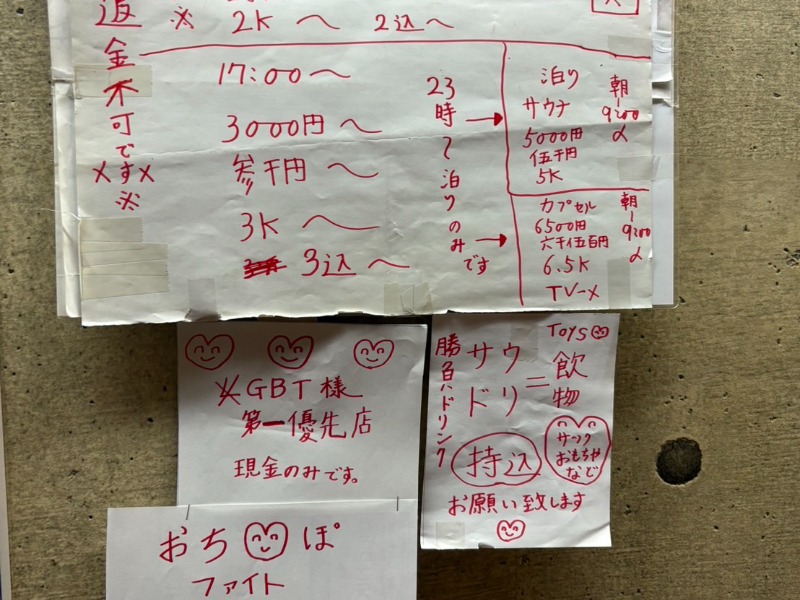 返金不可です※
※ 2K〜 2込〜
17:00〜
3000円〜
参千円〜
3K〜
3込〜
23時〜泊りのみです
泊り
サウナ
5000円
伍千円
5K
朝〜9:00
カプセル
6500円
六千伍百円
6.5K
TV-×
朝〜9:00
GBT様
第一優先店
現金のみです。
おち ぽ
ファイト
Toys
勝負ハドリンク
サウドリ=飲物
持込
サック
おもちゃ
など
お願い致します